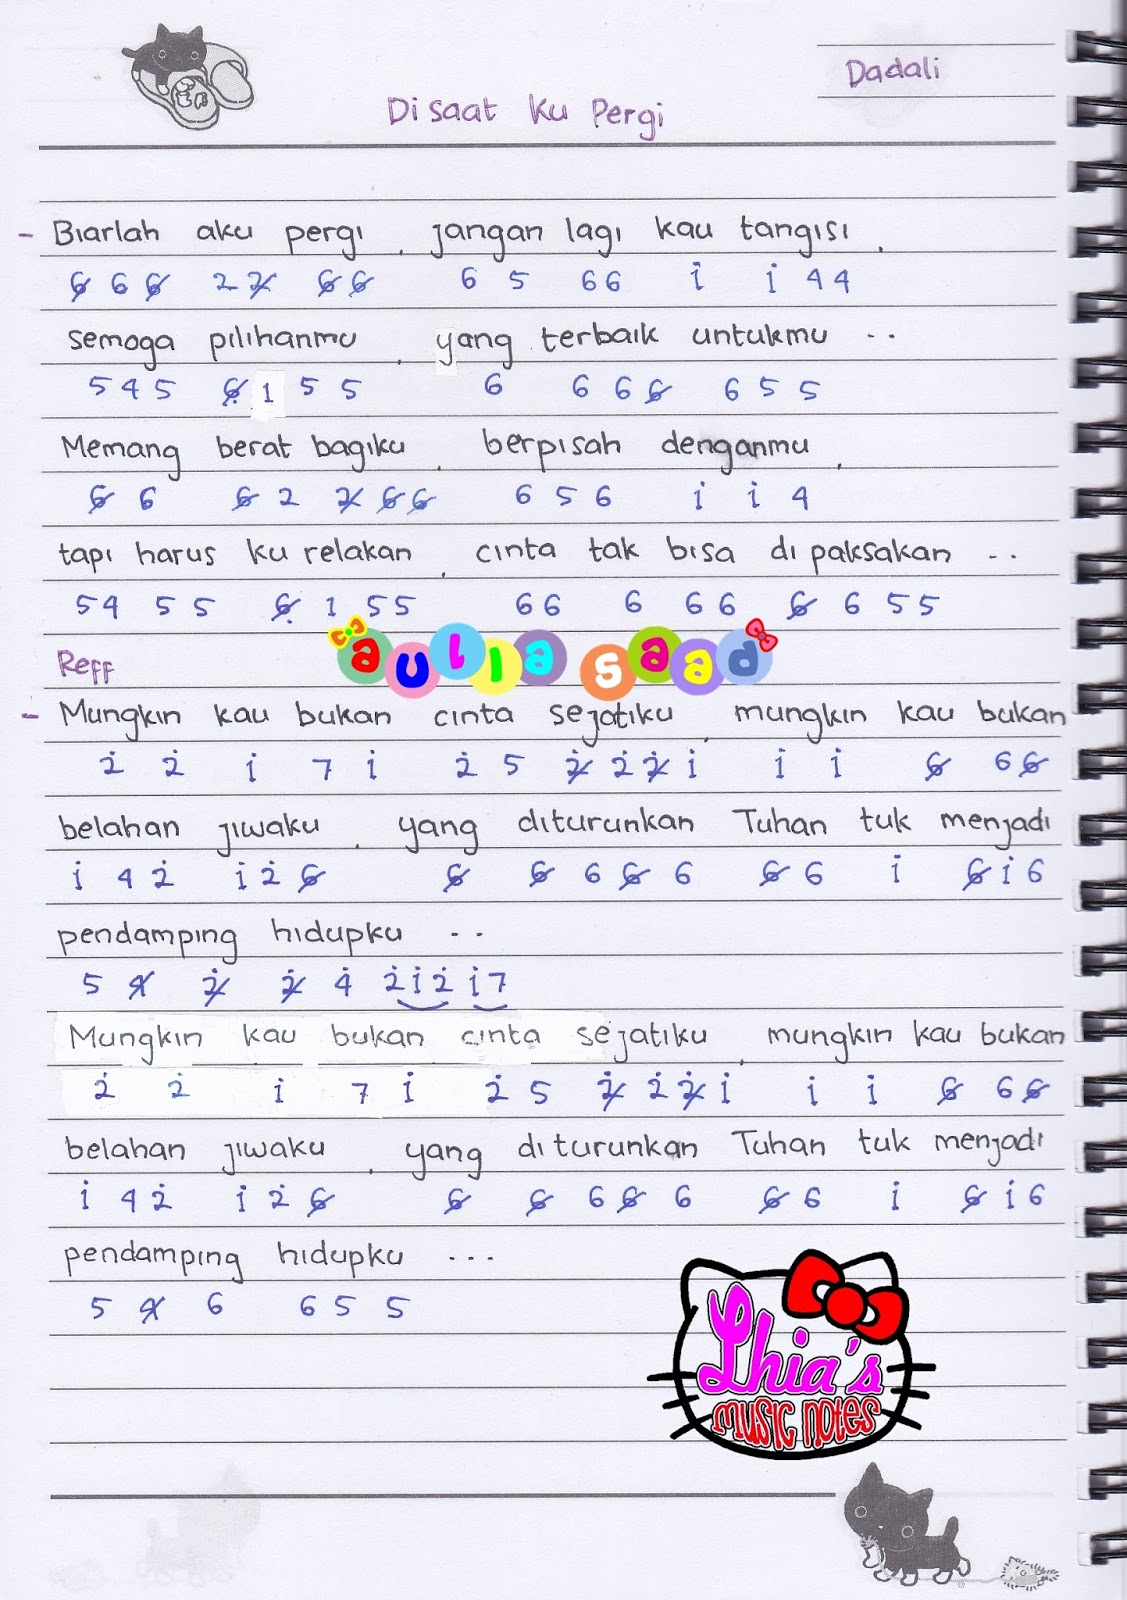 Dadali
Di saat ku Pergi
- Biarlah aku pergi, jangan lagi kau tangisi,
6̸ 6 6̸ 2 2̸ 6̸ 6̸ 6 5 6 6 i i 4 4
semoga pilihanmu, yang terbaik untukmu ..
5 4 5 6̸̣ 1 5 5 6 6 6 6̸ 6 5 5
Memang berat bagiku, berpisah denganmu,
6̸ 6 6̸ 2 2̸ 6̸ 6̸ 6 5 6 i i 4
tapi harus ku relakan, cinta tak bisa di paksakan ..
5 4 5 5 6̸̣ 1 5 5 6 6 6 6 6 6̸ 6 5 5
aulia saad
Reff
- Mungkin kau bukan cinta sejatiku, mungkin kau bukan
2̇ 2̇ i 7 i 2̇ 5 2̸̇ 2̇ 2̸̇ i i i 6̸ 6 6̸
belahan jiwaku, yang diturunkan Tuhan tuk menjadi
i 4 2̇ i 2̇ 6̸ 6̸ 6̸ 6 6̸ 6 6̸ 6 i 6̸ i 6
pendamping hidupku ..
5 4̸ 2̸̇ 2̸̇ 4̇ 2̇ i 2̇ i 7
Mungkin kau bukan cinta sejatiku, mungkin kau bukan
2̇ 2̇ i 7 i 2̇ 5 2̸̇ 2̇ 2̸̇ i i i 6̸ 6 6̸
belahan jiwaku, yang di turunkan Tuhan tuk menjadi
i 4 2̇ i 2̇ 6̸ 6̸ 6̸ 6 6̸ 6 6̸ 6 i 6̸ i 6
pendamping hidupku ...
5 4̸ 6 6 5 5
Lhia's
MUSIC NOTES